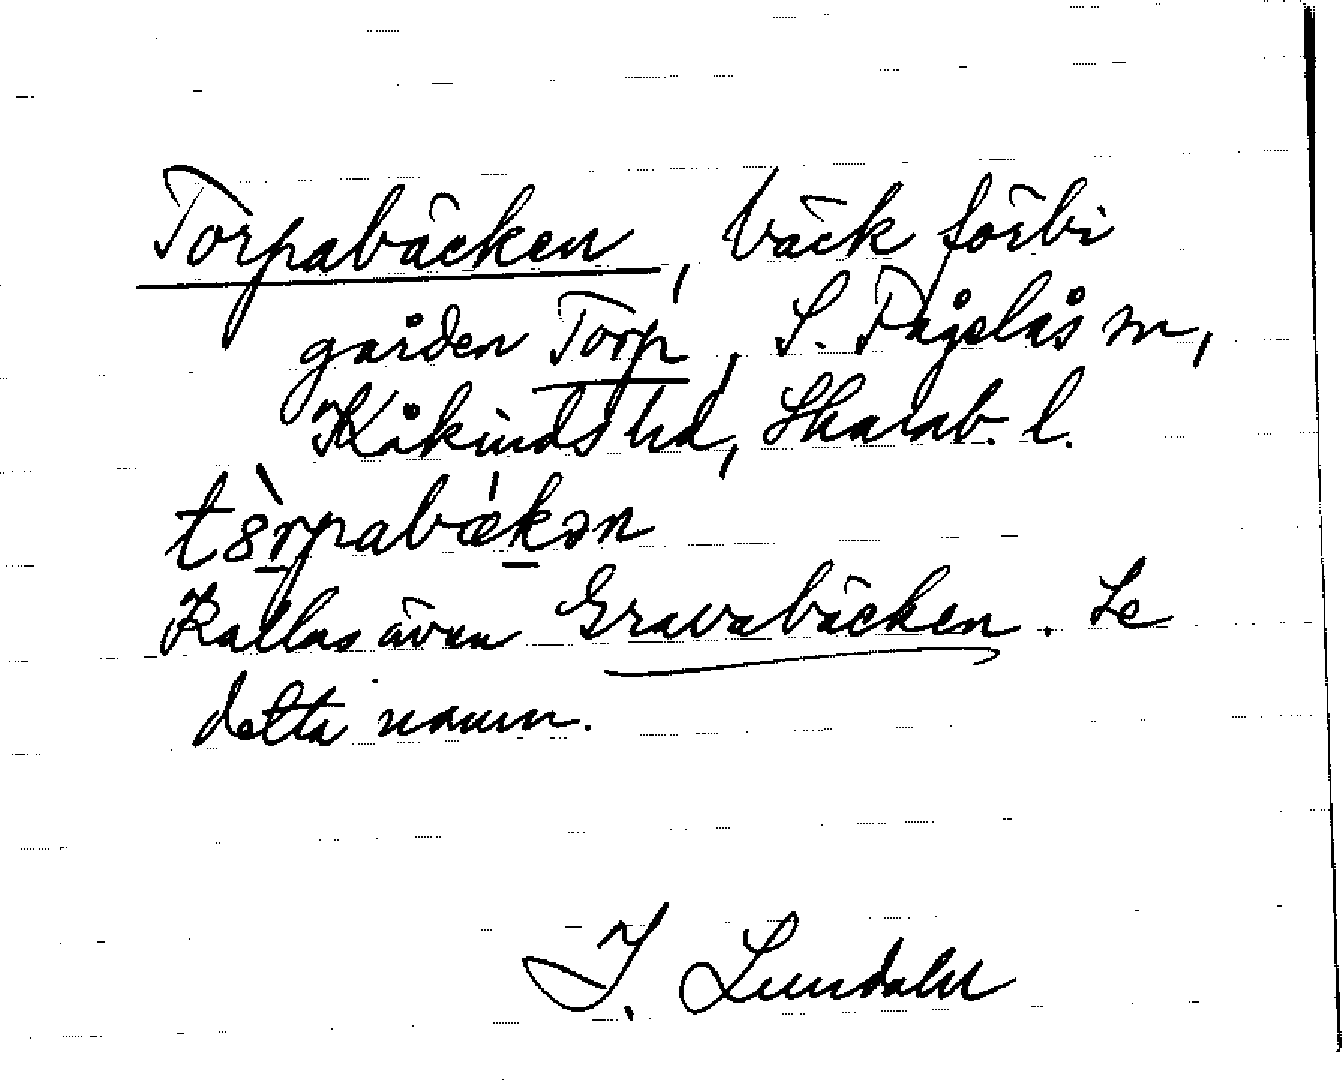 Torpabäcken, bäck förbi
gården Torp, S. Fågelås sn,
Kåkinds hd, Skarab. l.
tȣ̀rpabækən
Kallas även Gravabäcken. Se
detta namn.
I. Lundahl